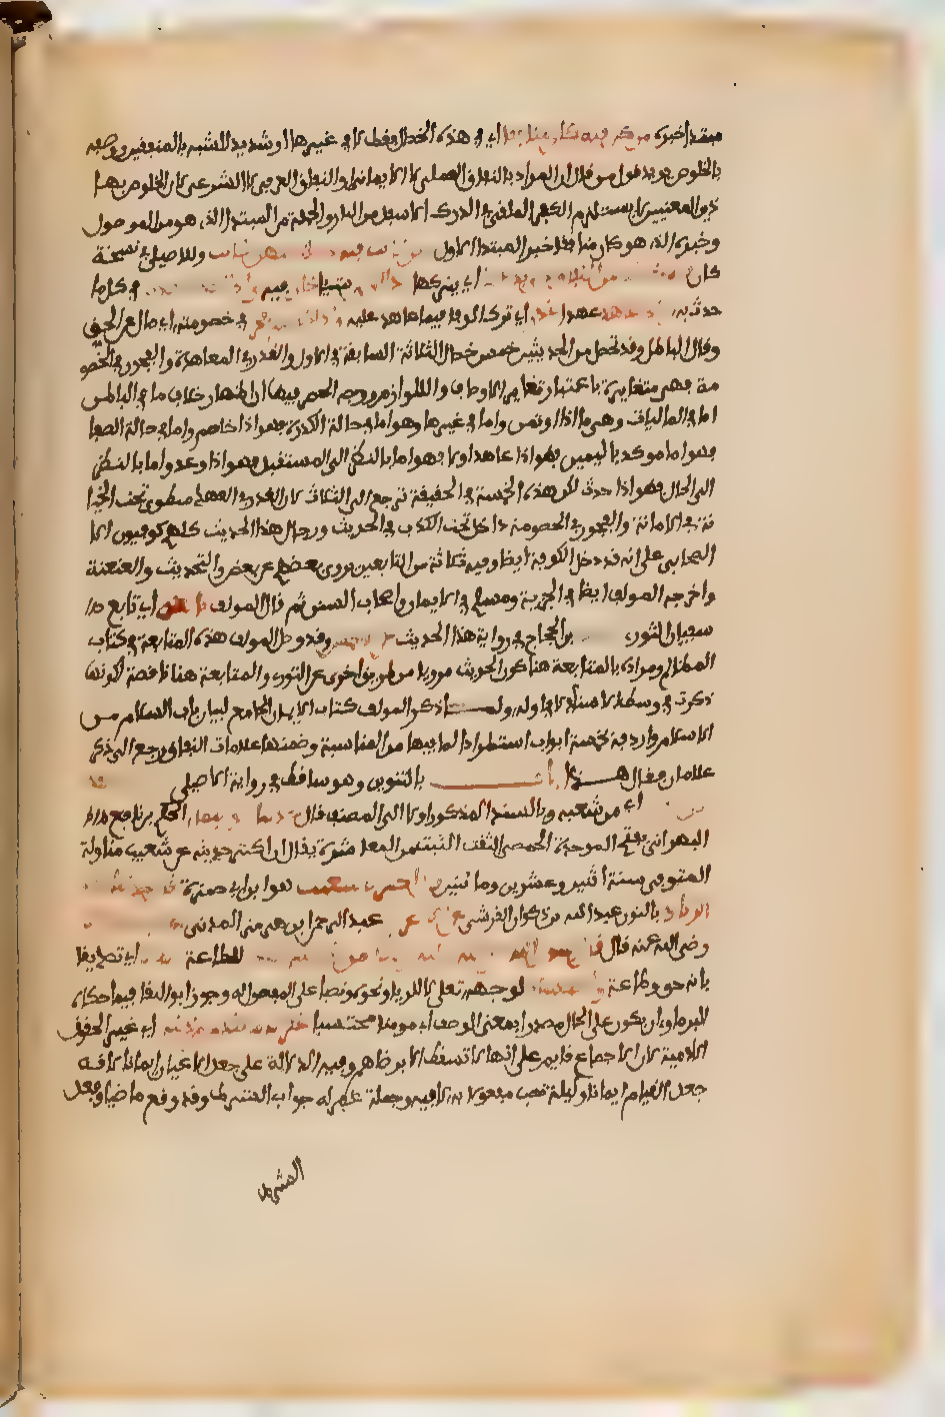 مبتدا خبره من كن فيه كان منافقا اي في هذه الخصال فقط لا في غيرها او شديد الشبه بالمنافقين ووصفه
بالخلوص يؤيد قول من قال ان المراد بالنفاق العملي لا الايماني او النفاق العرفي لا الشرعي لان الخلوص بهذا
ين المعنيين لا يستلزم الكفر الملقي في الدرك الاسفل من النار والجملة من المبتدا الذي هو من الموصول
وخبره الذي هو كان منافقا خبر المبتدا الاول ومن كانت فيه خصلة منهن كانت وللاصيلي في نسخة
كان فيه خصلة من النفاق حتى يدعها اي يتركها اذا اؤتمن شيئا خان فيه واذا حدث كذب في كل ما
حدث به واذا عاهد عهدا غدر اي ترك الوفا فيما عاهد عليه واذا خاصم فجر في خصومته اي مال عن الحق
وقال الباطل وقد تحصل من الحديثين خمس خصال الثلاثة السابقة في الاول والغدر في المعاهدة والفجور في الخصو
مة فهي متغايرة باعتبار تغاير الاوصاف واللوازم ووجه الحصر فيها ان اظهار خلاف ما في الباطن
اما في الماليات وهي ما اذا اوتمن واما في غيرها وهو اما في حالة الكدرة فهو اذا خاصم واما في حالة الصفا
فهو اما موكد باليمين فهو اذا عاهد او لا فهو اما بالنظر الى المستقبل فهو اذا وعد واما بالنظر
الى الحال فهو اذا حدث لكن هذه الخمسة في الحقيقة ترجع الى الثلاث لان الغدر في العهد منطوي تحت الخيا
نة في الامانة والفجور في الخصومة داخل تحت الكذب في الحديث ورجال هذا الحديث كلهم كوفيون الا
الصحابي على انه قد دخل الكوفة ايضا وفيه ثلاثة من التابعين يروي بعضهم عن بعض والتحديث والعنعنة
واخرجه المولف ايضا في الجزية ومسلم في الايمان واصحاب السنن ثم قال المولف تابعه اي تابع
سفيان الثوري بن الحجاج في رواية هذا الحديث عن الاعمش وقد وصل المولف هذه المتابعة في كتاب
المظالم ومراده بالمتابعة هنا كون الحديث مرويا من طريق اخرى عن الثوري والمتابعة هنا ناقصة لكونها
ذكرت في وسط الاسناد لا في اوله ولما ذكر المولف كتاب الايمان الجامع لبيان باب السلام من
الاسلام واردفه بخمسة ابواب استطرادا لما فيها من المناسبة وضمنها علامات النفاق رجع الى ذكر
علامات فقال هذا باب بالتنوين وهو ساقط في رواية الاصيلي
اي من شعبه وبالسند المذكور اولا الى المصنف قال حدثنا ابو اليمان الحكم بن نافع
البهراني بفتح الموحدة الحمصي الثقة الثبت من العاشرة يقال ان اكثر حديثه عن شعيب مناولة
المتوفى سنة اثنين وعشرين وماتين اخبرنا شعيب هو ابن ابي حمزة قال حدثنا
الزناد بالنون عبد الله بن ذكوان القرشي عن الاعرج عبد الرحمن بن هرمز المدني
رضي الله عنه قال قال رسول الله للطاعة اي تصديقا
بانه حق وطاعة لوجهه تعلى لا للريا ونحوه ونصبا على المفعول له وجوز ابو البقا فيما حكاه
البرماوي ان يكون على الحال مصدرا بمعنى الوصف اي مومنا محتسبا غفر له ما تقدم من ذنبه اي غير الحقوق
الادمية لان الاجماع قايم على انها لا تسقط الا برضاهم وفيه الدلالة على جعل الاعمال ايمانا لانه
جعل القيام ايمانا وليلة نصب مفعول به لا فيه وجملة غفر له جواب الشرط وقد وقع ماضيا وفعل
الشرط